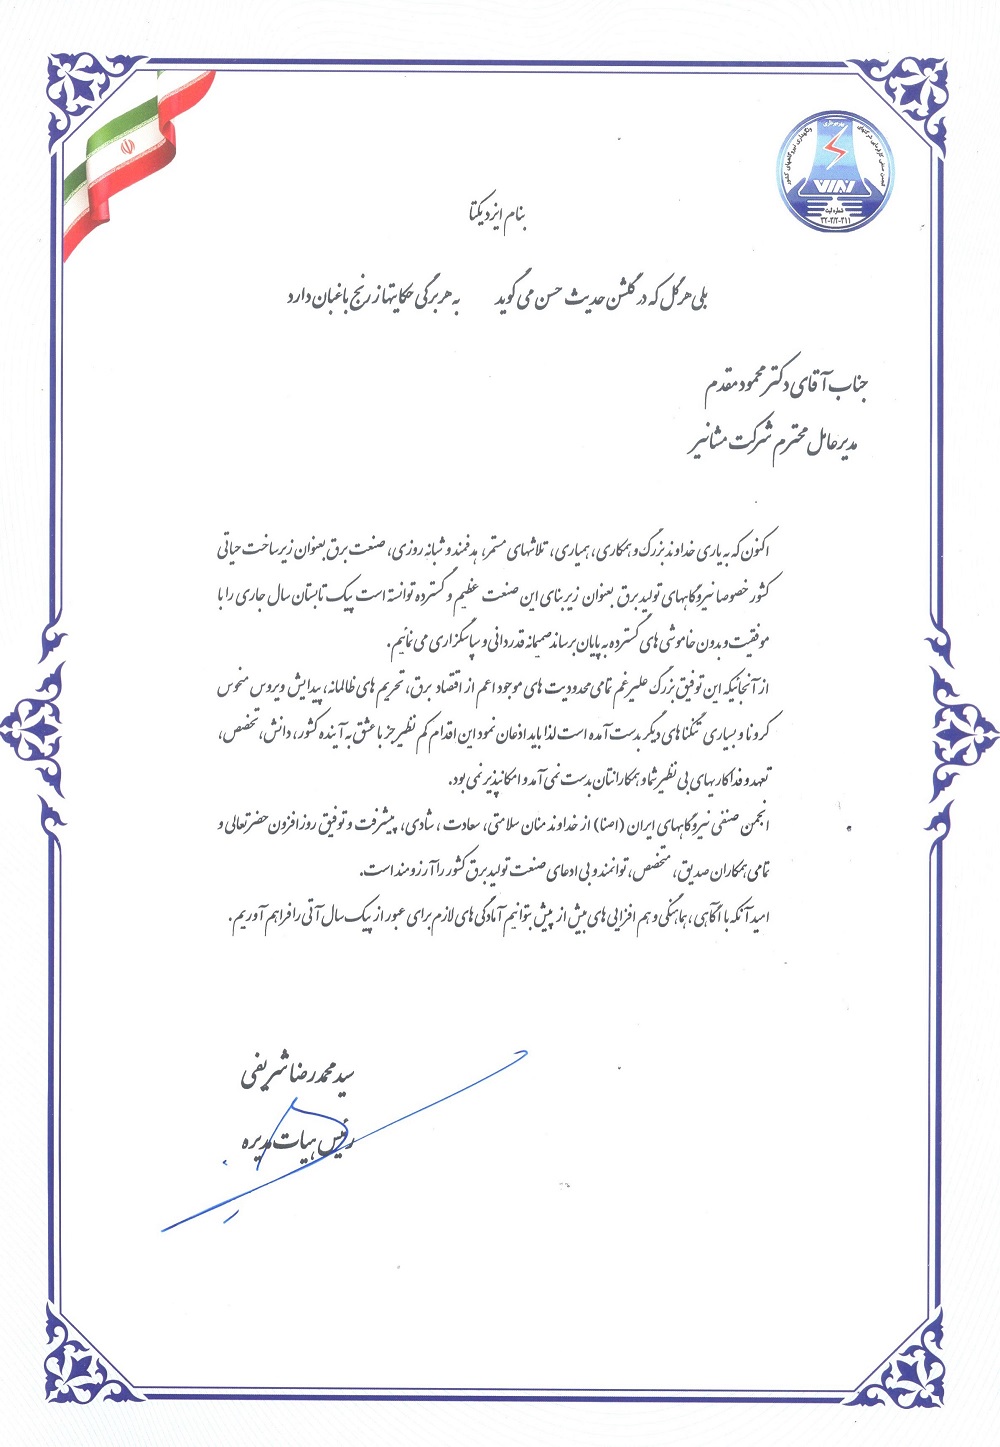 انجمن صنفی کارفرمایی شرکتهای
ونگهداری نیروگاههای کشور
شماره ثبت
بنام ایزد یکتا
بلی هر گل که در گلشن حدیث حسن می گوید به هر برگی حکایتها ز رنج باغبان دارد
جناب آقای دکتر محمود مقدم
مدیرعامل محترم شرکت مشانیر
اکنون که به یاری خداوند بزرگ و همکاری، همیاری، تلاشهای مستمر، هدفمند و شبانه روزی، صنعت برق بعنوان زیرساخت حیاتی
کشور خصوصا نیروگاههای تولید برق بعنوان زیربنای این صنعت عظیم و گسترده توانسته است پیک تابستان سال جاری را با
موفقیت و بدون خاموشی های گسترده به پایان برساند صمیمانه قدردانی و سپاسگزاری می نمائیم.
از آنجائیکه این توفیق بزرگ علیرغم تمامی محدودیت های موجود اعم از اقتصاد برق، تحریم های ظالمانه، پیدایش ویروس منحوس
کرونا و بسیاری تنگناهای دیگر بدست آمده است لذا باید اذعان نمود این اقدام کم نظیر جز با عشق به آینده کشور، دانش، تخصص،
تعهد و فداکاریهای بی نظیر شما و همکارانتان بدست نمی آمد و امکانپذیر نمی بود.
انجمن صنفی نیروگاههای ایران (اصنا) از خداوند منان سلامتی، سعادت، شادی، پیشرفت و توفیق روزافزون حضرتعالی و
تمامی همکاران صدیق، متخصص، توانمند و بی ادعای صنعت تولید برق کشور را آرزومند است.
امید آنکه با آگاهی، هماهنگی و هم افزایی های بیش از پیش بتوانیم آمادگی های لازم برای عبور از پیک سال آتی را فراهم آوریم.
سید محمدرضا شریفی
رئیس هیات مدیره